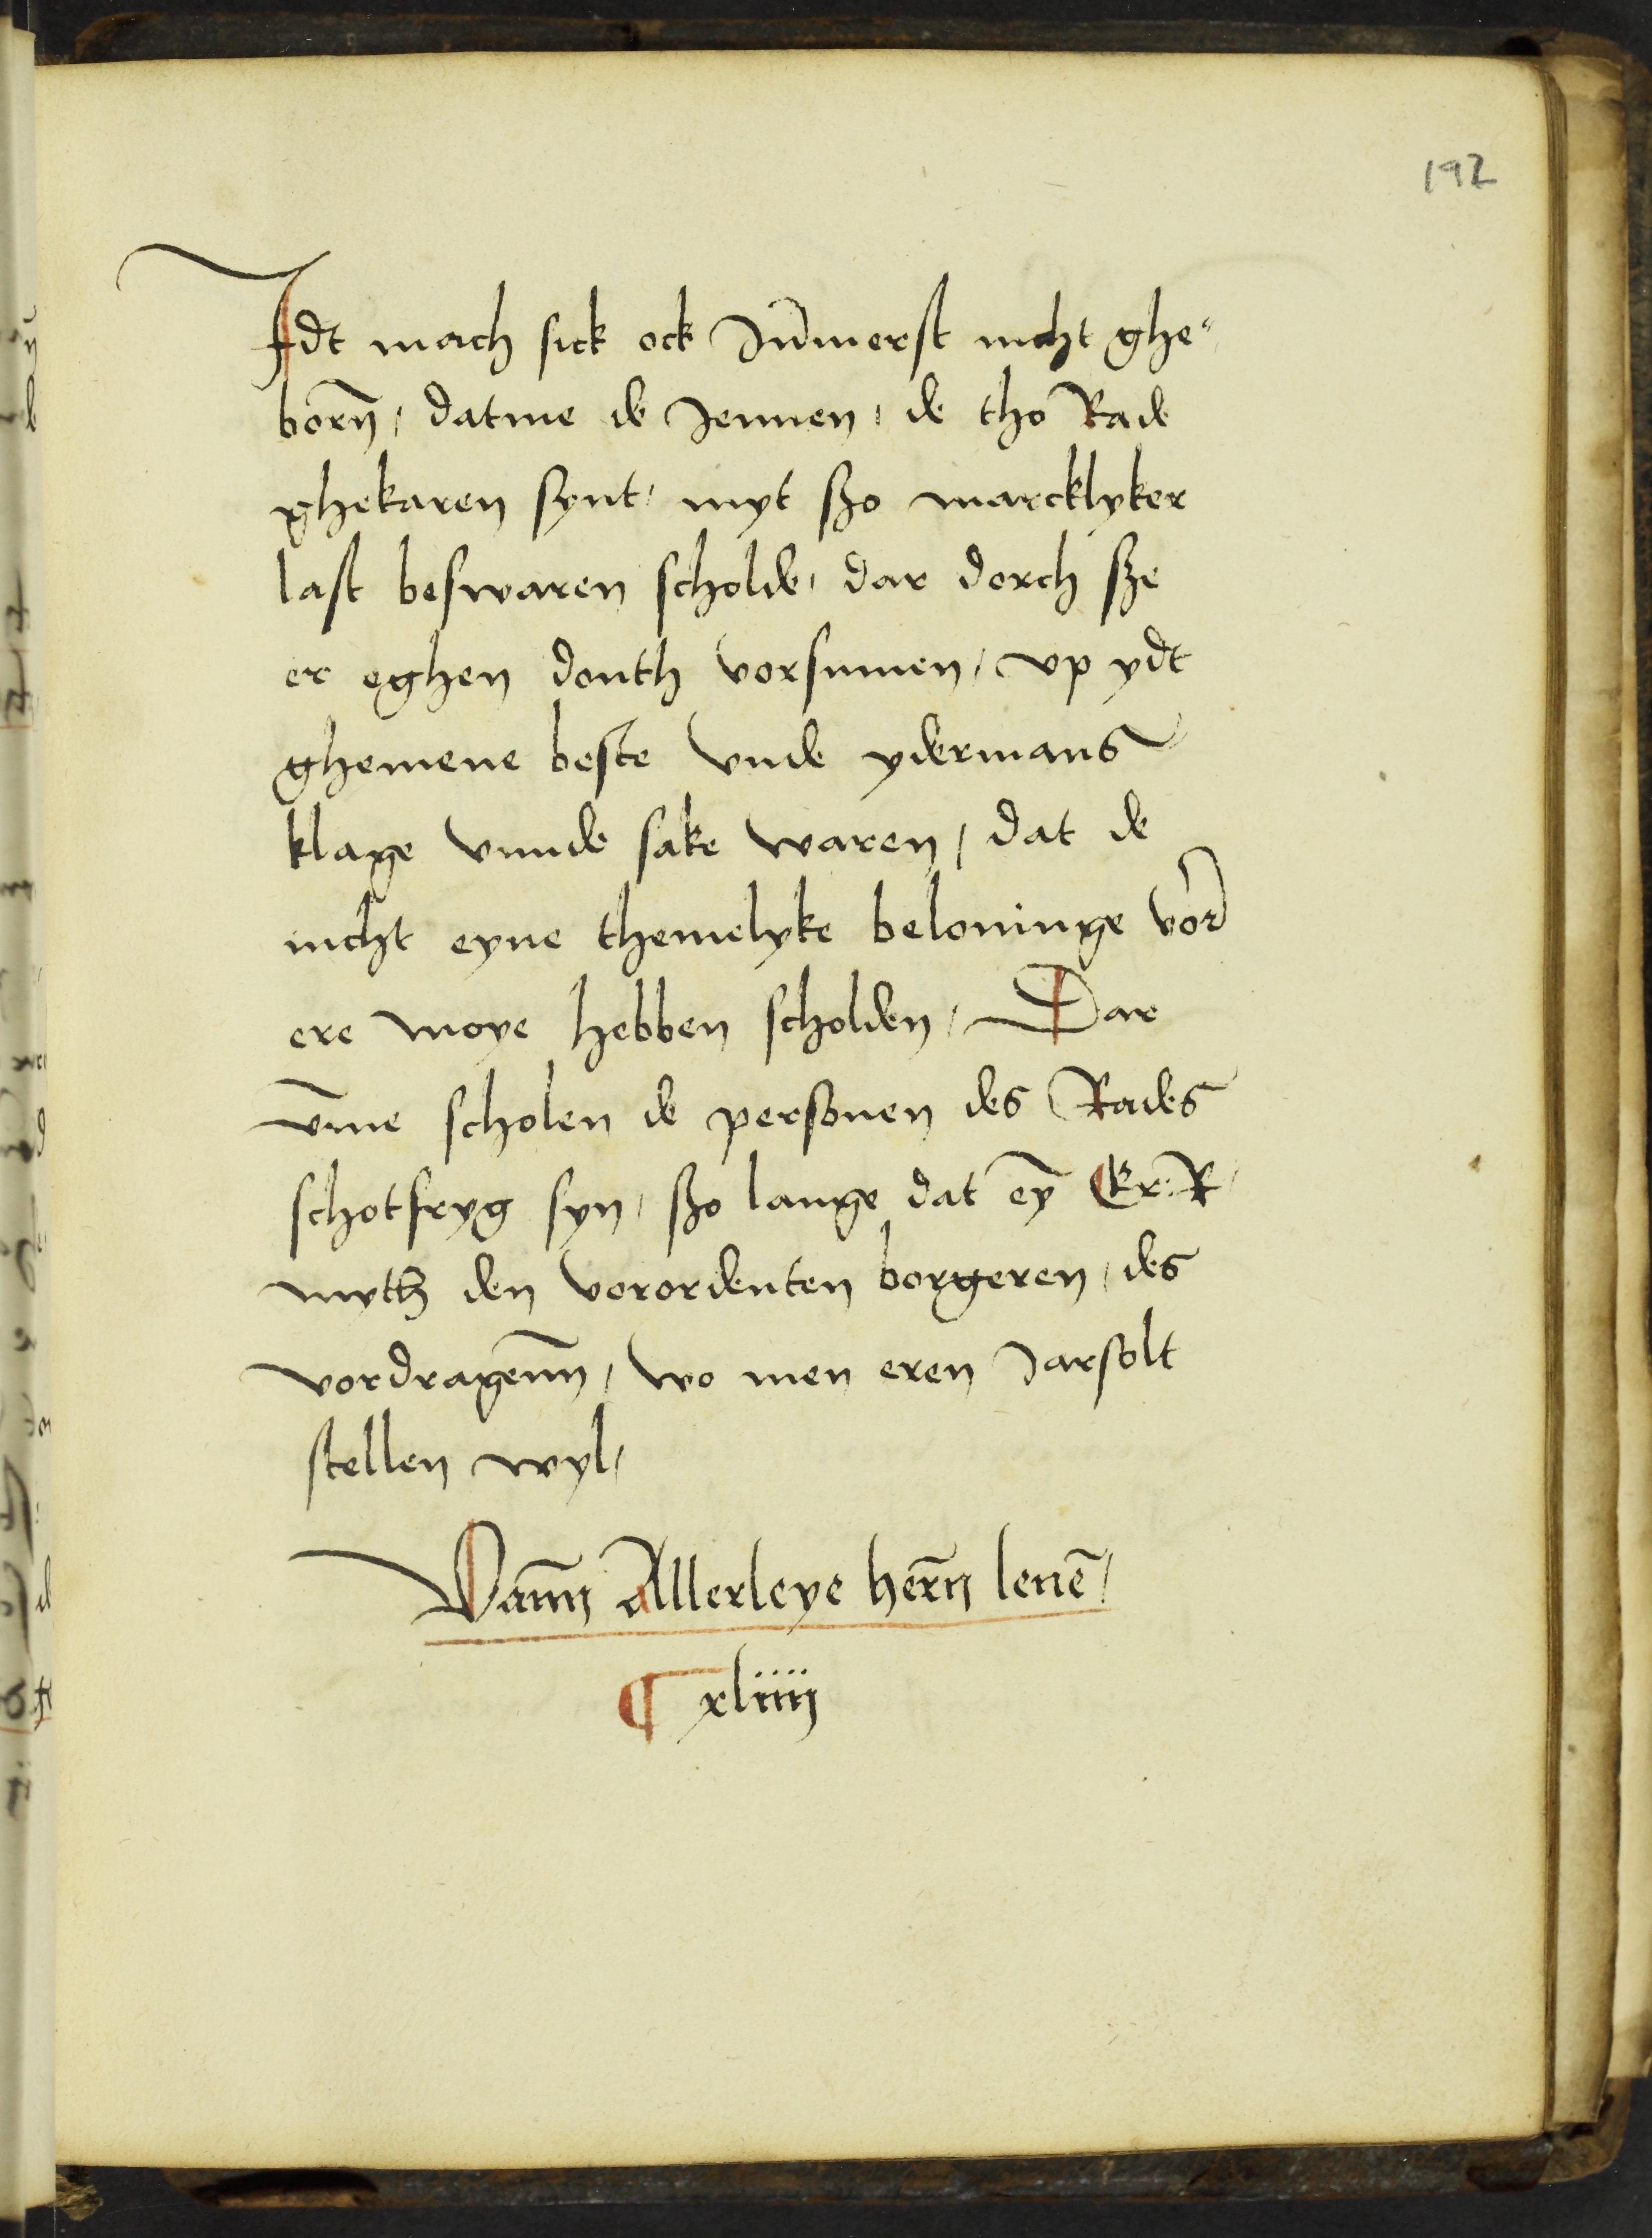 192
Idt mach sick ock Jũmerst nicht ghe"
born̄, datme de Jennen, de tho Rade
ghekaren synt, myt szo marcklyker
last beswaren scholde, dar dorch sze
er eghen donth vorsumen, vp ydt
ghemene beste vnde ydermans
klage vnnde sake waren, dat de
nicht eyne themelyke beloninge vor
ere moye hebben scholden, Dar
v̄me scholen de personen des Rades
schotfryg syn, szo lange dat eȳ Er. R.
myth den vorordenten borgeren, des
vordragenn̄, wo men eren Jarsolt
stellen wyl,
Vann̄ Allerleye hern̄ lenē,
¶ xliiij